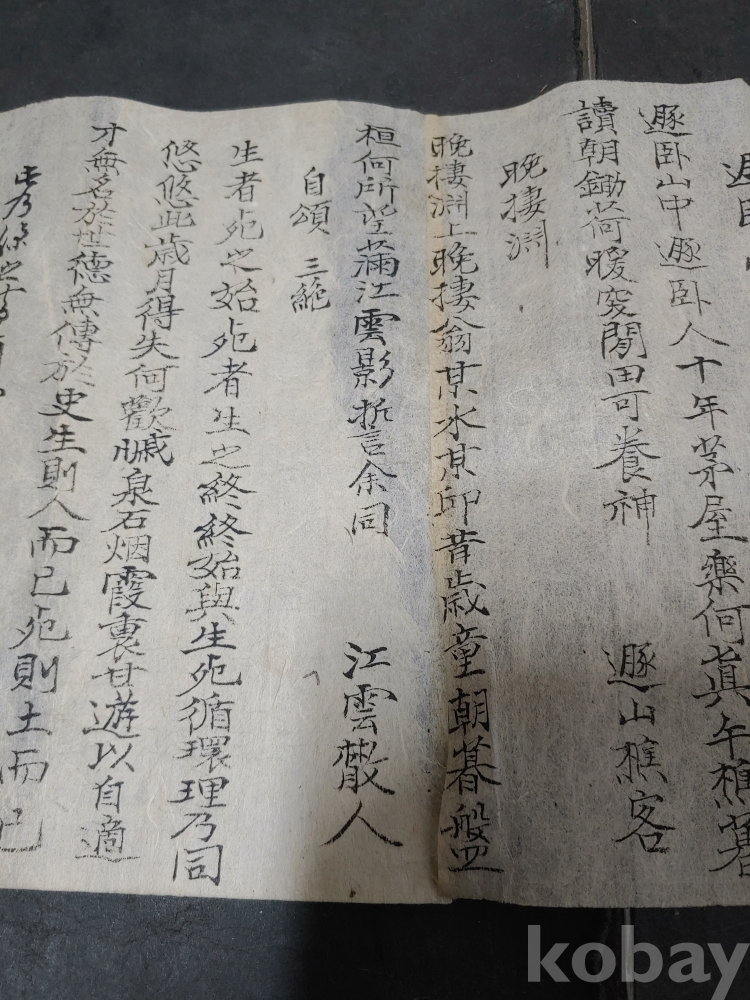 遯卧山中遯卧人十年茅屋樂何眞午樵暮
讀朝鋤荷暖安閒田可養神 遯山樵客
晩棲淵
晩棲淵上晩棲翁某水某邱昔歲童朝暮盤
桓何所望滿江雲影哲言余同 江雲散人
自頌 三絶
生者死之始死者生之終終始與生死循環理乃同
悠悠此歲月得失何歡慽泉石烟霞裏甘遊以自適
才無名於世德無傳於史生則人而已死則土而已
kobay